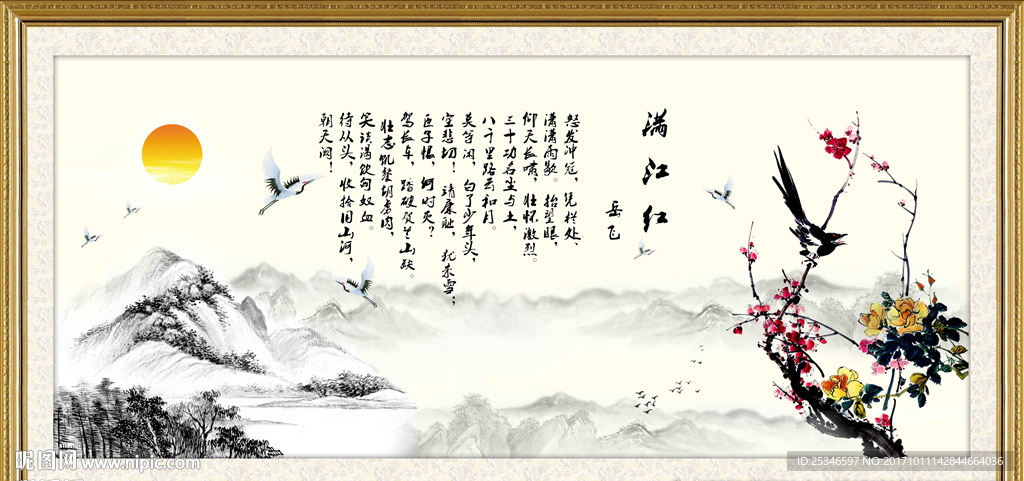 满江红
岳飞
怒发冲冠，凭栏处，
潇潇雨歇。抬望眼，
仰天长啸，壮怀激烈。
三十功名尘与土，
八千里路云和月。
莫等闲，白了少年头，
空悲切！靖康耻，犹未雪；
臣子恨，何时灭？
驾长车，踏破贺兰山缺。
壮志饥餐胡虏肉
笑谈渴饮匈奴血。
待从头，收拾旧山河，
朝天阙！
昵图网 www.nipic.com
ID:25346597 NO:20171011142844664036